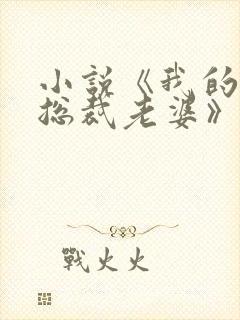 小説《我的
總裁老婆》
戰火火